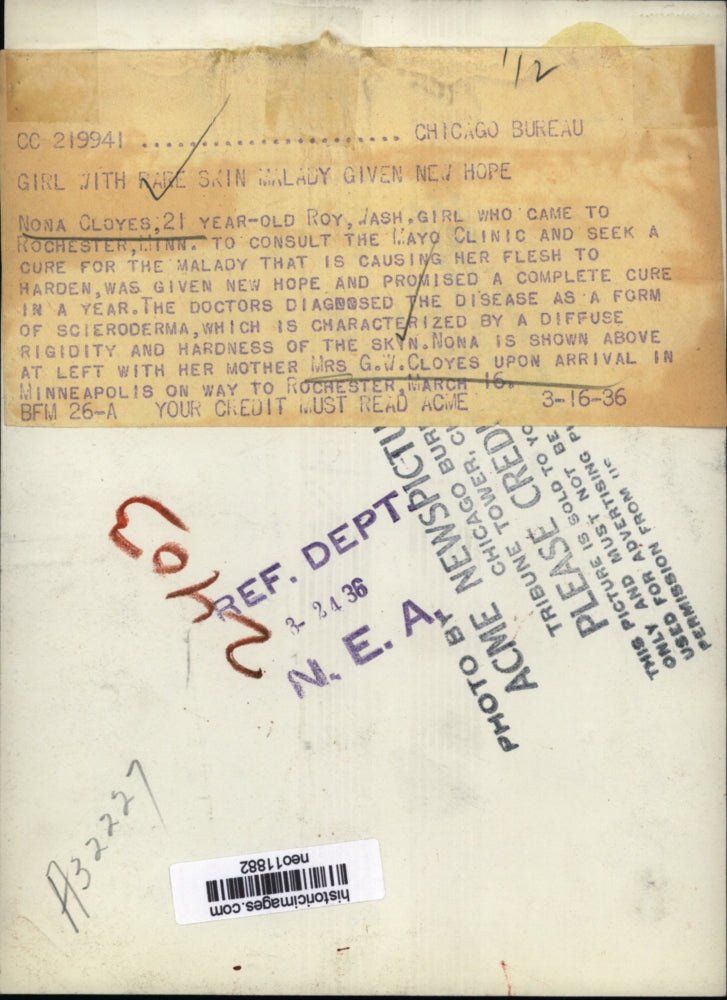 1/2
CC 219941 ........................ CHICAGO BUREAU
GIRL WITH RARE SKIN MALADY GIVEN NEW HOPE
NONA CLOYES,21 YEAR-OLD ROY,WASH.GIRL WHO CAME TO
ROCHESTER,MINN. TO CONSULT THE MAYO CLINIC AND SEEK A
CURE FOR THE MALADY THAT IS CAUSING HER FLESH TO
HARDEN,WAS GIVEN NEW HOPE AND PROMISED A COMPLETE CURE
IN A YEAR.THE DOCTORS DIAGNOSED THE DISEASE AS A FORM
OF SCIERODERMA,WHICH IS CHARACTERIZED BY A DIFFUSE
RIGIDITY AND HARDNESS OF THE SKIN.NONA IS SHOWN ABOVE
AT LEFT WITH HER MOTHER MRS G.W.CLOYES UPON ARRIVAL IN
MINNEAPOLIS ON WAY TO ROCHESTER,MARCH 16.
BFM 26-A YOUR CREDIT MUST READ ACME 3-16-36
REF. DEPT.
3-24 36
N. E. A.
PHOTO BY
ACME NEWSPICTU
CHICAGO BUR
TRIBUNE TOWER, C
PLEASE CREDI
THIS PICTURE IS SOLD TO YO
ONLY AND MUST NOT BE
USED FOR ADVERTISING P
PERMISSION FROM US
A32227
historicimages.com
neo11882